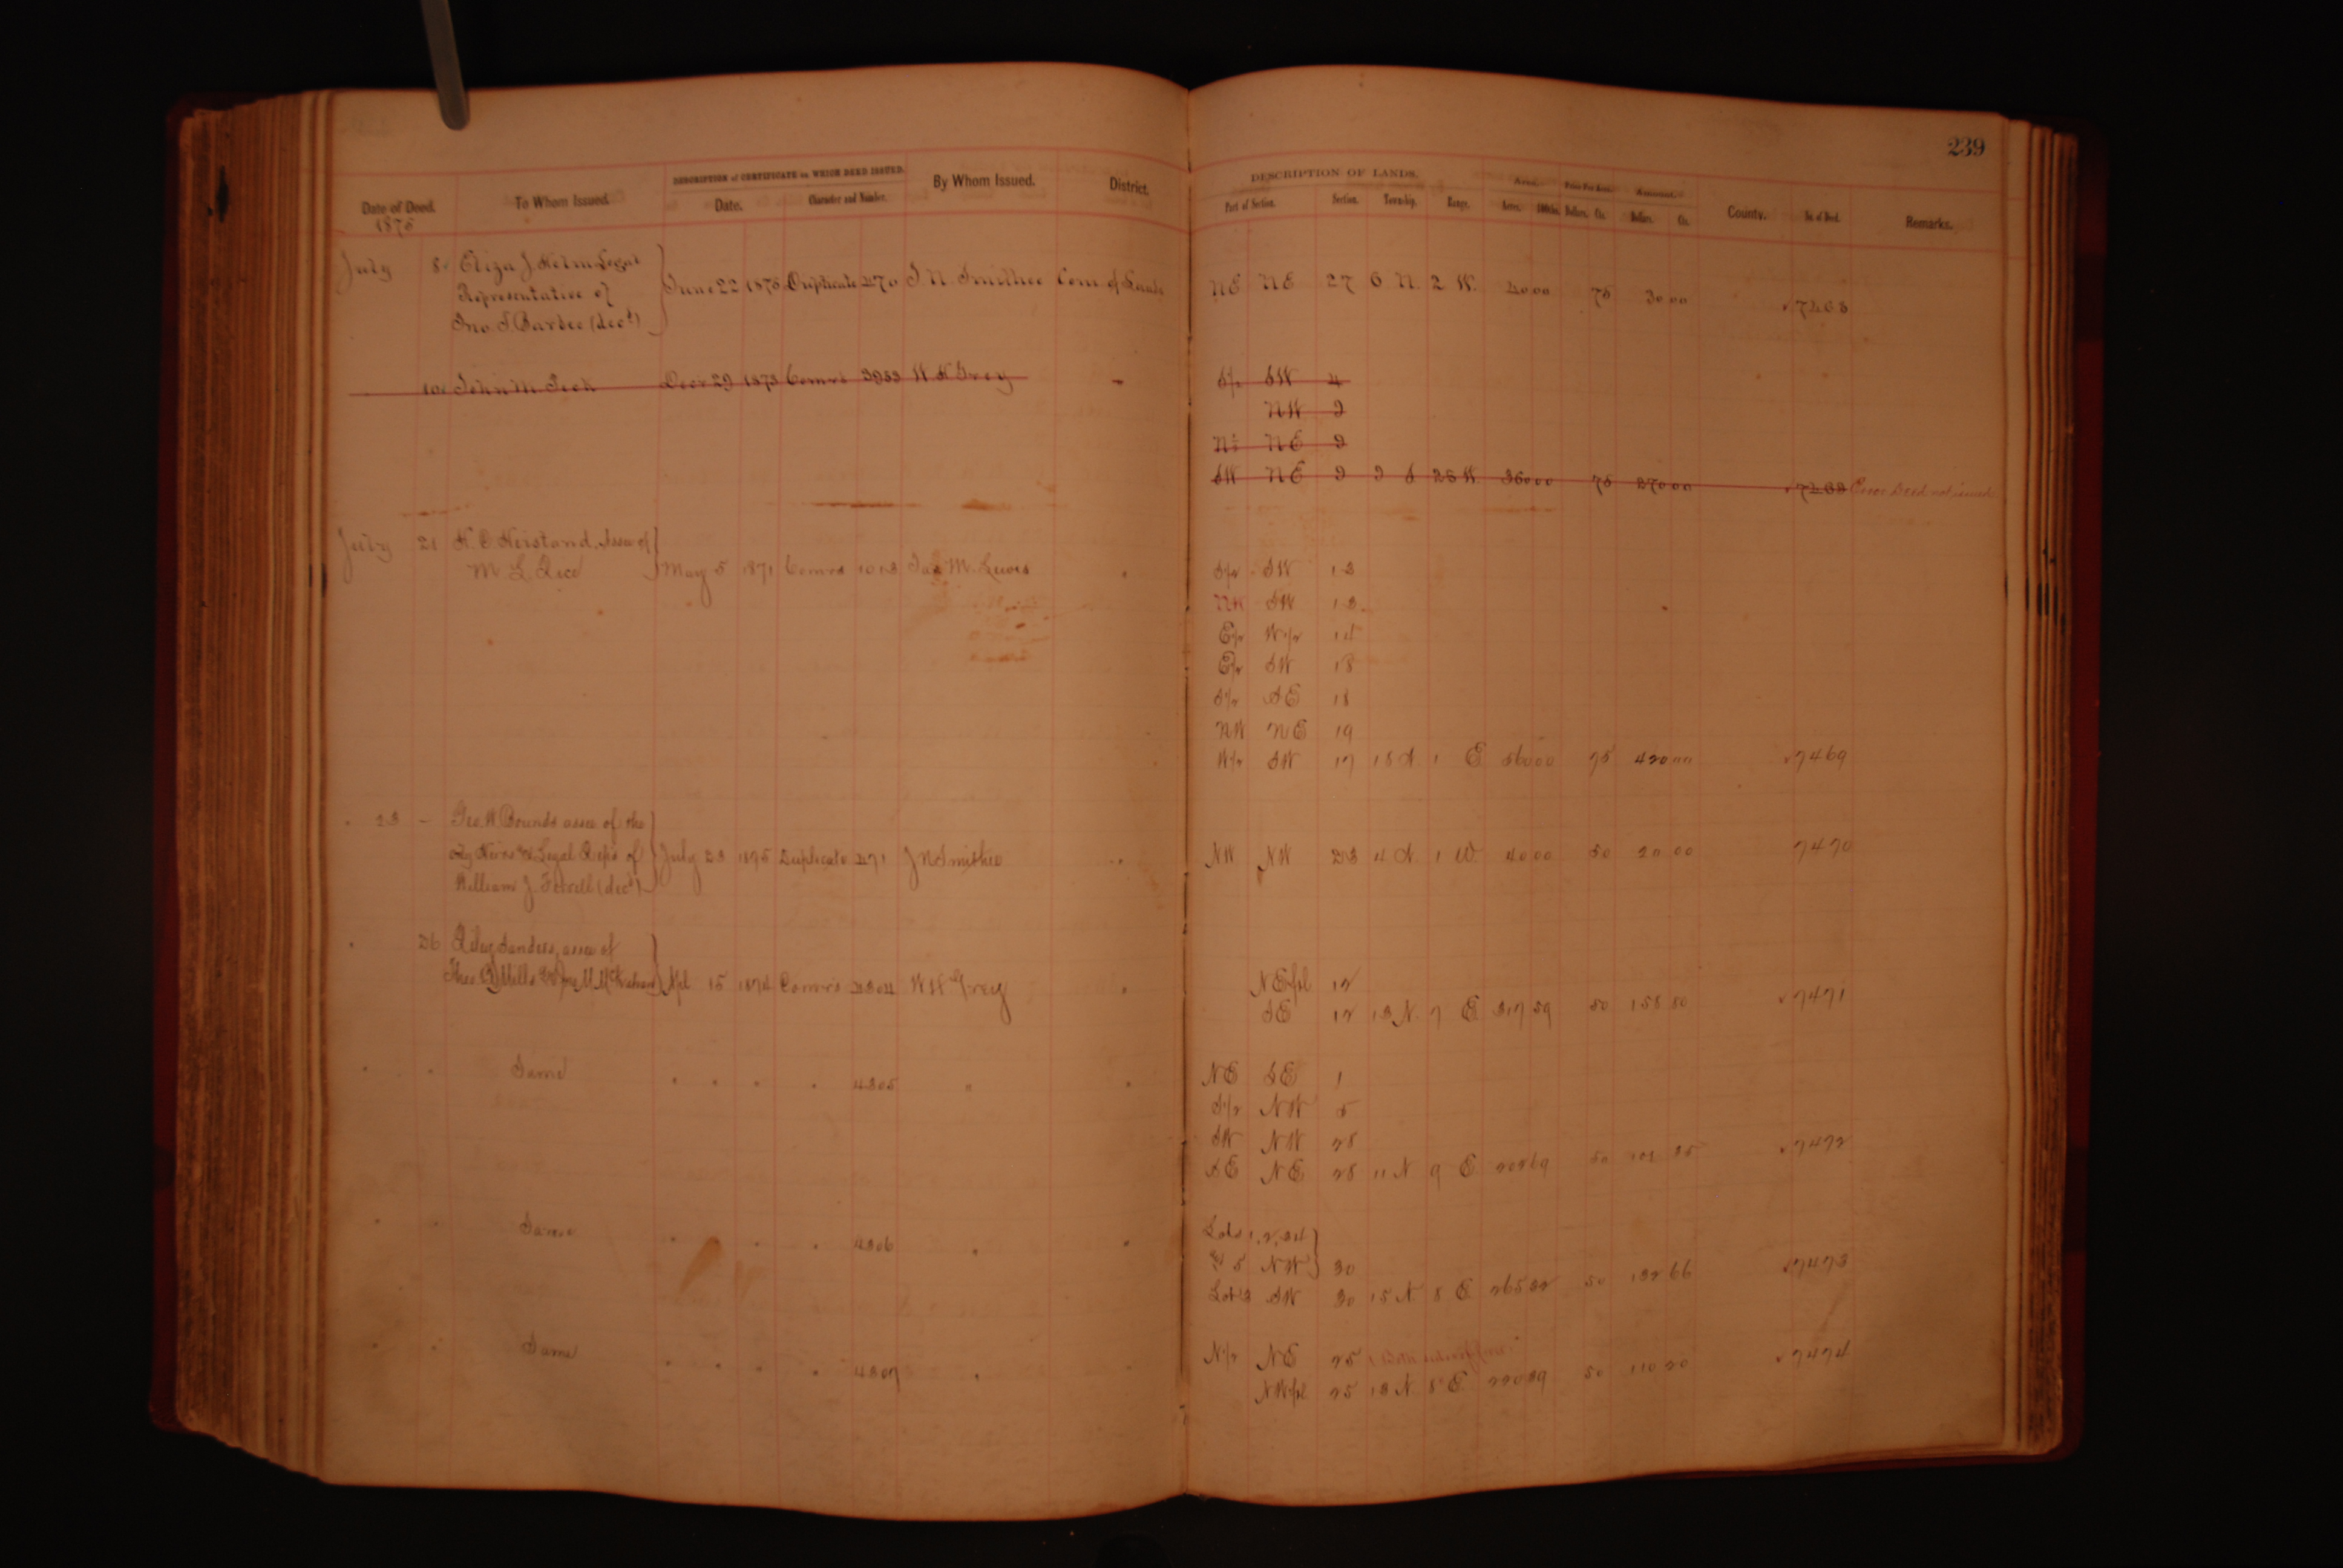 239
DESCRIPTION of CERTIFICATE on WHICH DEED ISSUED. DESCRIPTION OF LANDS. Area. Price Per Acre. Amount.
Date of Deed. To Whom Issued. Date. Character and Number. By Whom Issued. District. Part of Section. Section. Township. Range. Acres. 100ths. Dollars. Cts. Dollars. Cts. County. No. of Deed. Remarks.
1875
July 8 Eliza J. Helm Legal
Representative of June 22 1875 Duplicate 270 J N Smithee Com. of Lands NE NE 27 6 N. 2 W. 40 00 75 30 00 7468
Jno. T. Barbee (decd)
John M. Peck Decr 29 1873 Comrs 3953 W H Grey S/2 SW 4
NW 9
N½ NE 9
SW NE 9 9 S 25 W. 360 00 75 270 00 Error Deed not issued
July 21 H. C. Heistand, Assee of
M. L. Rice May 5 1871 Comrs 1013 Jas M. Lewis " S/2 SW 13
NW SW 13
E/2 W/2 14
E/2 SW 18
S/2 SE 18
NW NE 19
W/2 SW 17 18 S. 1 E 560 00 75 420 00 7469
" 23 Geo. W. Bounds assee of the
only Heirs and Legal Reps of July 23 1875 Duplicate 271 J N Smithee " NW NW 23 4 S. 1 W. 40 00 50 20 00 7470
William J. (decd)
" 26 Riley Sanders, assee of
Mills Apl 15 1874 Comrs 4304 W H Grey " NE frl 12
SE 12 13 N. 7 E 317 59 50 158 80 7471
" " Same " " " " 4305 " " NE SE 1
S/2 NW 5
SW NW 28
SE NE 28 11 N 9 E 202 69 50 101 35 7472
" " Same " " " 4306 " " Lots 1, 2, 3, 4
& 5 NW 30
Lot 3 SW 30 15 N. 8 E 265 32 50 132 66 7473
" " Same " " " " 4307 " " N/2 NE 25
NW frl 25 13 N 8 E 220 39 50 110 20 7474